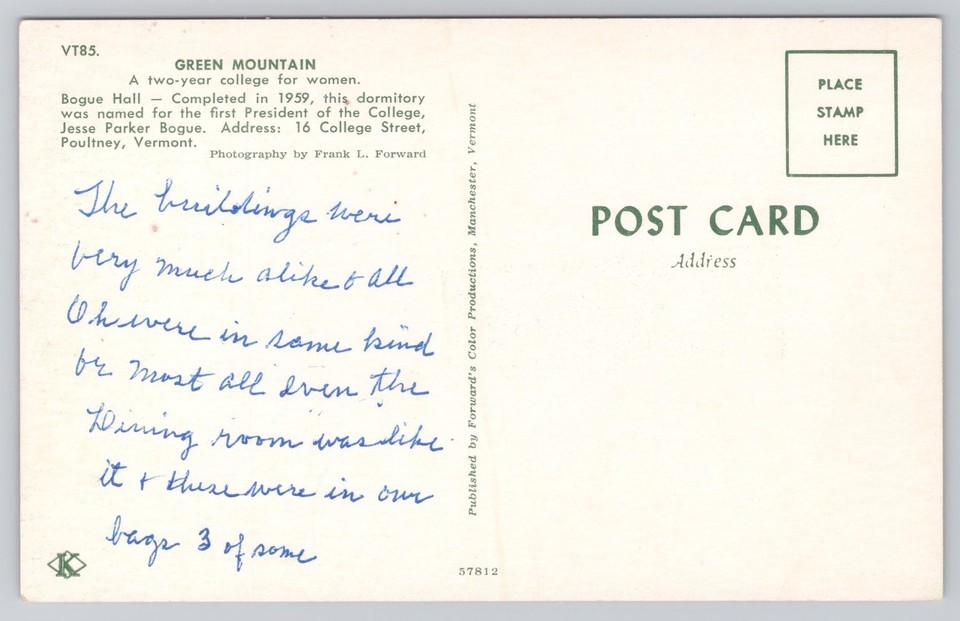 VT85.
GREEN MOUNTAIN
A two-year college for women.
Bogue Hall — Completed in 1959, this dormitory
was named for the first President of the College,
Jesse Parker Bogue. Address: 16 College Street,
Poultney, Vermont.
Photography by Frank L. Forward
The buildings were
very much alike & all
Oh were in same kind
or most all even the
Dining room was like
it + these were in our
bags 3 of some
K
Published by Forward's Color Productions, Manchester, Vermont
57812
PLACE
STAMP
HERE
POST CARD
Address